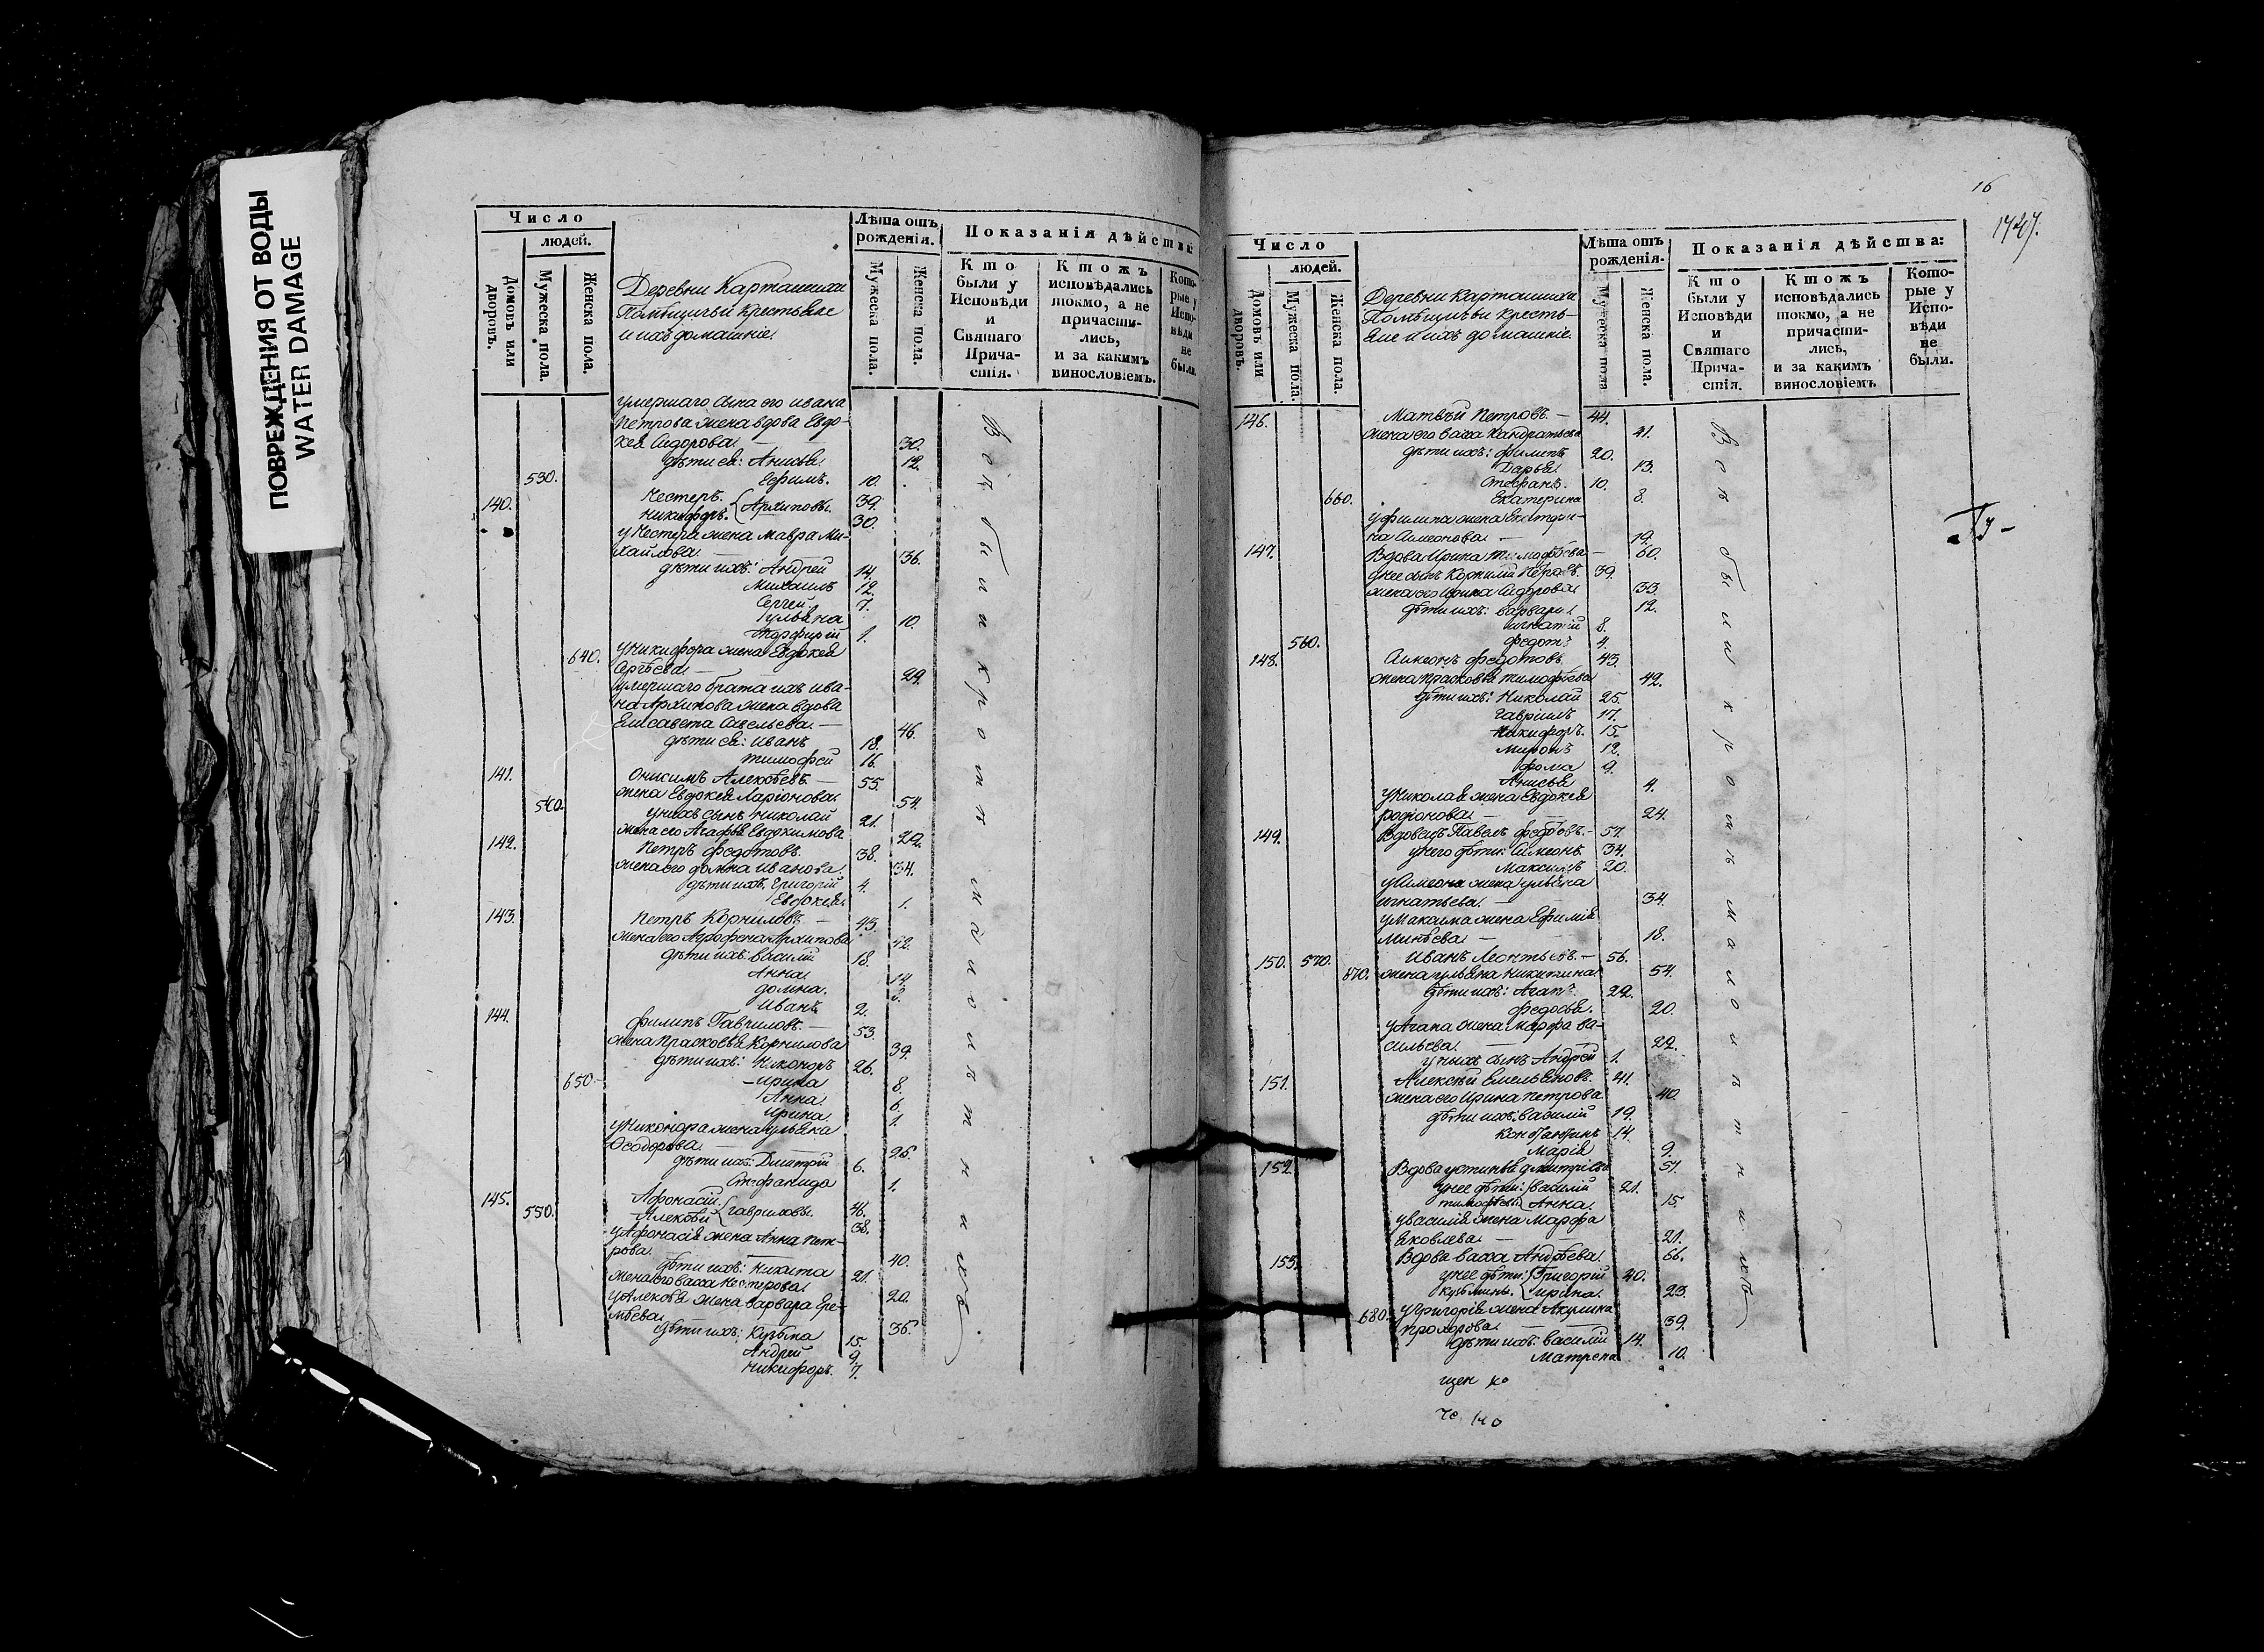 ПОВРЕЖДЕНИЯ ОТ ВОДЫ
WATER DAMAGE
Число
людей.
Домовъ или дворовъ.
Мужеска пола.
Женска пола.
Деревни Карташихи
Помѣщичьи крестьяне
и ихъ домашніе.
Лѣта отъ рожденія.
Мужеска пола.
Женска пола.
Показанія дѣйства:
Кто были у Исповѣди и Святаго Причастія.
Ктожъ исповѣдались токмо, а не причастились, и за какимъ винословіемъ.
Которые у Исповѣди не были.
умершаго сына его Ивана
Петрова жена вдова Евдо-
кея Сидорова — 30.
дѣти ея: Анисья 12.
530. Ефимъ. 10.
140. Нестеръ. 39.
Никифоръ. {Архиповы. 30.
у Нестера жена Мавра Ми-
хайлова — 36.
дѣти ихъ: Андрей 14.
Михаилъ 12.
Сергей 7.
Ульяна 10.
Порфирій 1.
640. у Никифора жена Евдокея
Сергѣева — 29.
умершаго брата ихъ Ива-
на Архипова жена вдова
Елисавета Савельева — 46.
дѣти ея: Иванъ 18.
Тимофей 16.
141. Онисимъ Алексѣевъ — 55.
жена Евдокея Ларіонова 54.
540. у нихъ сынъ Николай 21.
жена его Агафья Евдокимова 22.
142. Петръ Федотовъ. 38.
жена его Домна Иванова. 34.
дѣти ихъ: Григорій 4.
Евдокея 1.
143. Петръ Корниловъ — 43.
жена его Агрофена Архипова 42.
дѣти ихъ: Василій 18.
Анна 14.
Домна. 8.
Иванъ 2.
144. Филипъ Гавриловъ. — 53.
жена Прасковья Корнилова 39.
дѣти ихъ: Никоноръ 26.
650. Ирина 8.
Анна 6.
Ирина 1.
у Никонора жена Ульяна
Ѳеодорова — 25.
дѣти ихъ: Дмитрій 6.
Стефанида 1.
145. Афонасій 46.
550. Алексѣй {Гавриловы. 38.
у Афонасія жена Анна Пет-
рова — 40.
дѣти ихъ: Никита 21.
жена его Васса Нестерова. 20.
у Алексѣя жена Варвара Ере-
мѣева 36.
дѣти ихъ: Кузьма 15.
Андрей 9.
Никифоръ. 7.
Всѣ были кромѣ малолѣтнихъ
16
1727.
Число
людей.
Домовъ или дворовъ.
Мужеска пола.
Женска пола.
Деревни Карташихи
Помѣщичьи кресть-
яне и ихъ домашніе.
Лѣта отъ рожденія.
Мужеска пола
Женска пола.
Показанія дѣйства:
Кто были у Исповѣди и Святаго Причастія.
Ктожъ исповѣдались токмо, а не причастились, и за какимъ винословіемъ
Которые у Исповѣди не были.
146. Матвѣй Петровъ — 44.
жена его Васса Кандратьева 41.
дѣти ихъ: Филипъ 20.
Дарья 13.
Стефанъ. 10.
660. Екатерина 8.
у Филипа жена Екатери-
на Симеонова — 19.
147. Вдова Ирина Тимофѣева — 60.
у нее сынъ Корнилій Петровъ. 39.
жена его Ирина Сидорова 33.
дѣти ихъ: Варвара 12.
Игнатій 8.
560. Федотъ 4.
148. Симеонъ Федотовъ. 43.
жена Прасковья Тимофѣева 42.
дѣти ихъ: Николай 25.
Гавріилъ 17.
Никифоръ. 15.
Миронъ 12.
Фома 9.
Анисья 4.
у Николая жена Евдокея
Родіонова — 24.
149. Вдовецъ Павелъ Федотовъ. — 57.
у него дѣти: Симеонъ. 34.
Максимъ 20.
у Симеона жена Ульяна
Игнатьева. — 34.
у Максима жена Ефимія
Минѣева — 18.
150. 570. Иванъ Леонтьевъ. — 56.
670. жена Ульяна Никитина 54.
дѣти ихъ: Агапъ. 22.
Федосья. 20.
у Агапа жена Марфа Ва-
сильева. — 22.
у ныхъ сынъ Андрей 1.
151. Алексѣй Емельяновъ. 41.
жена его Ирина Петрова 40.
дѣти ихъ: Василій 19.
Константинъ 14.
Марія 9.
152. Вдова Устинья Дмитріева 57.
у нее дѣти: {Василій 21.
Тимофѣевы {Анна. 15.
у Василія жена Марфа
Яковлева — 21.
153. Вдова Васса Андрѣева. 66.
у нее дѣти: {Григорій 40.
Кузьмины. {Ирина. 23.
680. у Григорія жена Акулина
Прохорова — 39.
дѣти ихъ: Василій 14.
Матрена 10.
Всѣ были кромѣ малолѣтнихъ